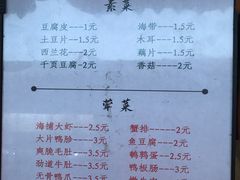 素菜
豆腐皮---1元
海带---1.5元
土豆片---1.5元
木耳---1.5元
西兰花---2元
藕片---1.5元
千页豆腐-2元
香菇---2元
荤菜
海捕大虾---2.5元
蟹排---2元
大片鸭胗---3元
鱼豆腐---2元
爽脆毛肚---3.5元
鹌鹑蛋---2.5元
劲道牛肚---3.5元
鸭板肠---3元
无骨鸭爪---